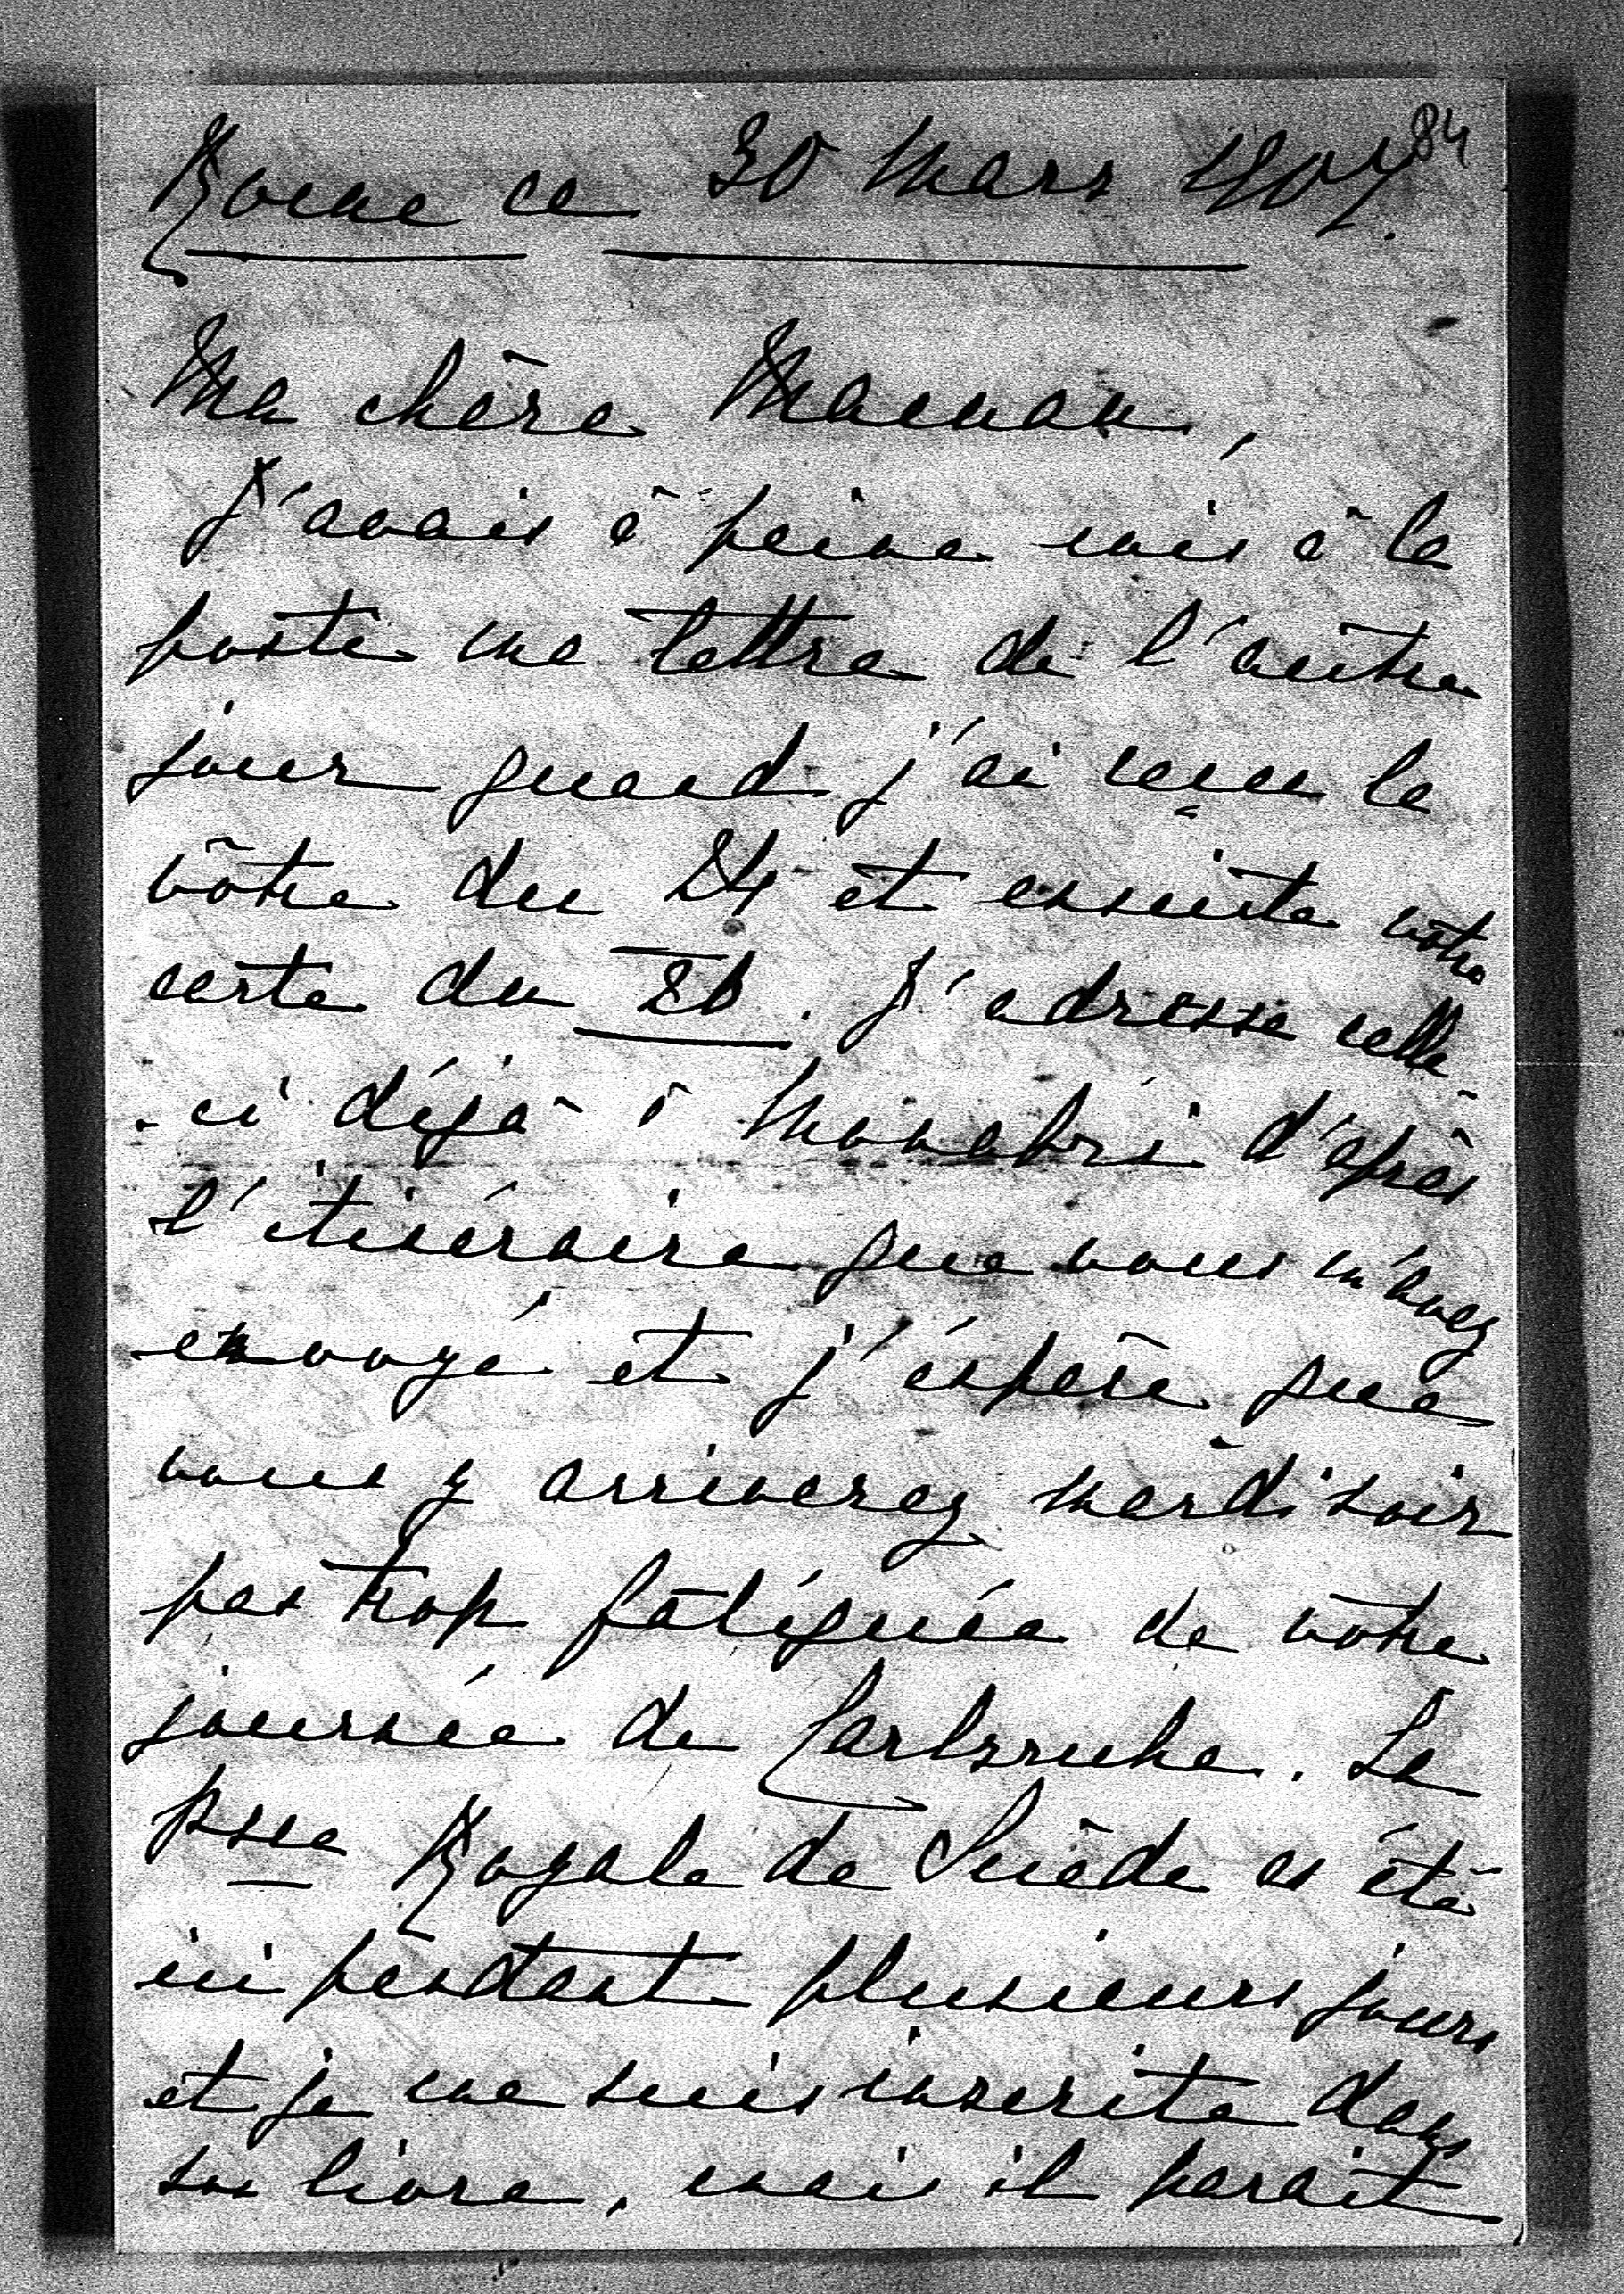 84
Rome ce 30 Mars 1907.
Ma chère Maman,
J'avais à peine mis à la
poste ma lettre de l'autre
jour quand j'ai reçu la
vôtre du 24 et ensuite votre
carte du 26. J'adresse celle-
-ci déjà à Monabri d'après
l'itinéraire que vous m'avez
envoyé et j'éspère que
vous y arriverez mardi soir
pas trop fatiguée de vôtre
journée de Carlsruhe. La
Psse Royale de Suède a été
ici pendant plusieurs jours
et je me suis inscrite dans
son livre, mais il parait